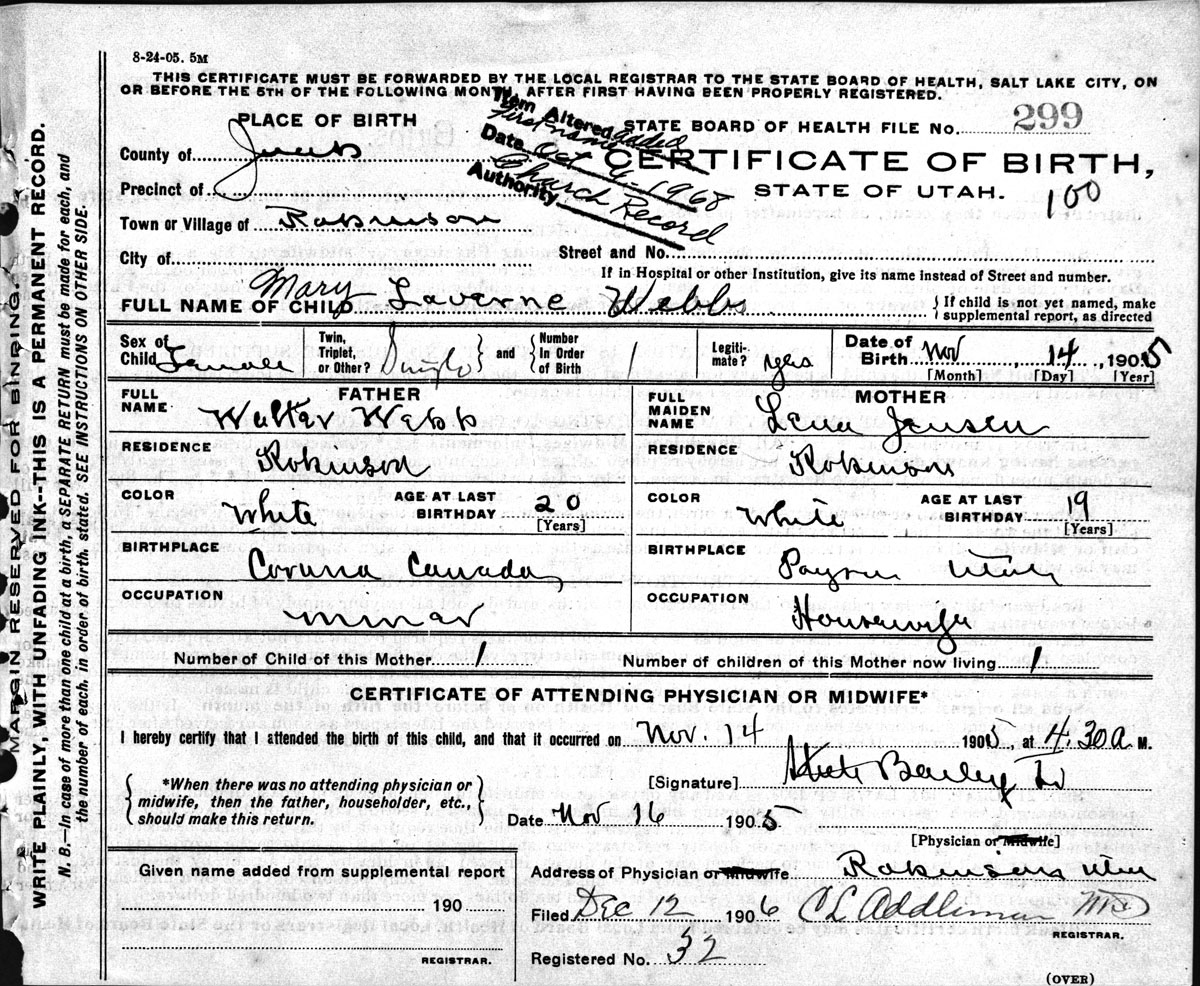 8-24-05. 5M
THIS CERTIFICATE MUST BE FORWARDED BY THE LOCAL REGISTRAR TO THE STATE BOARD OF HEALTH, SALT LAKE CITY, ON
OR BEFORE THE 5TH OF THE FOLLOWING MONTH, AFTER FIRST HAVING BEEN PROPERLY REGISTERED.
PLACE OF BIRTH
STATE BOARD OF HEALTH FILE No. 299
Item Altered added
First name
Date Oct 4-1968
Authority Church Record
County of Juab
CERTIFICATE OF BIRTH,
Precinct of
STATE OF UTAH.
100
Town or Village of Robinson
City of
Street and No.
If in Hospital or other Institution, give its name instead of Street and number.
FULL NAME OF CHILD Mary Laverne Webb
{ If child is not yet named, make
supplemental report, as directed
Sex of Child Female
Twin, Triplet, or Other? Single } and { Number In Order of Birth 1
Legiti-mate? yes
Date of Birth Nov 14, 1905
[Month] [Day] [Year]
FATHER
FULL NAME Walter Webb
MOTHER
FULL MAIDEN NAME Lena Jensen
RESIDENCE Robinson
RESIDENCE Robinson
COLOR White
AGE AT LAST BIRTHDAY 20
[Years]
COLOR White
AGE AT LAST BIRTHDAY 19
[Years]
BIRTHPLACE Coruna Canada
BIRTHPLACE Payson Utah
OCCUPATION minar
OCCUPATION Housewife
Number of Child of this Mother 1
Number of children of this Mother now living 1
CERTIFICATE OF ATTENDING PHYSICIAN OR MIDWIFE*
I hereby certify that I attended the birth of this child, and that it occurred on Nov. 14 1905, at 4.30 a M.
{ *When there was no attending physician or
midwife, then the father, householder, etc.,
should make this return. }
[Signature] Bailey
Date Nov 16 1905
[Physician or Midwife]
Given name added from supplemental report
190
REGISTRAR.
Address of Physician or Midwife Robinson Utah
Filed Dec 12 1906 C L Addleman MD
REGISTRAR.
Registered No. 32
(OVER)
MARGIN RESERVED FOR BINDING.
WRITE PLAINLY, WITH UNFADING INK--THIS IS A PERMANENT RECORD.
N. B.—In case of more than one child at a birth, a SEPARATE RETURN must be made for each, and
the number of each, in order of birth, stated. SEE INSTRUCTIONS ON OTHER SIDE.